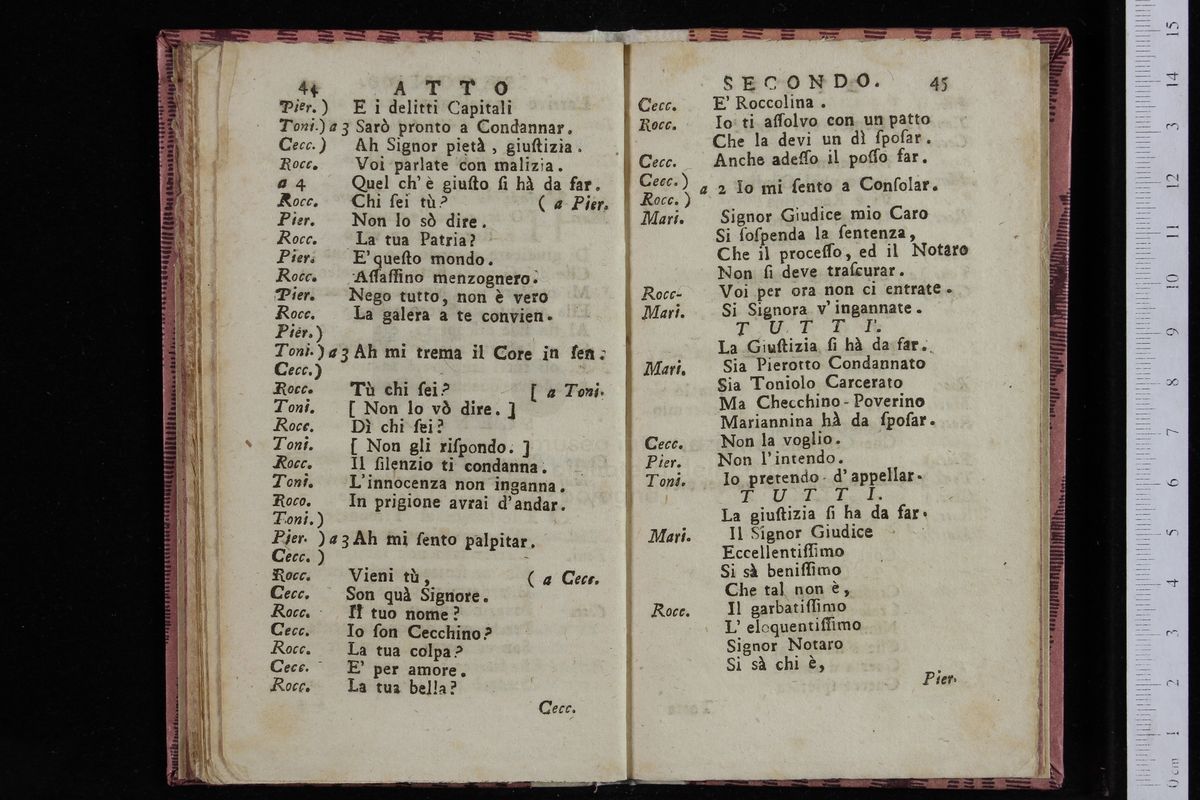 44 ATTO
Pier. ) E i delitti Capitali
Toni.) a 3 Sarò pronto a Condannar.
Cecc. ) Ah Signor pietà , giuſtizia .
Rocc. Voi parlate con malizia .
a 4 Quel ch' è giuſto ſi hà da far.
Rocc. Chi ſei tù? ( a Pier.
Pier. Non lo sò dire .
Rocc. La tua Patria?
Pier. E' queſto mondo.
Rocc. Aſſaſſino menzognero.
Pier. Nego tutto, non è vero
Rocc. La galera a te convien.
Pier.)
Toni.) a 3 Ah mi trema il Core in ſen.
Cecc.)
Rocc. Tù chi ſei? [ a Toni.
Toni. [ Non lo vò dire. ]
Rocc. Dì chi ſei?
Toni. [ Non gli riſpondo. ]
Rocc. Il ſilenzio ti condanna.
Toni. L'innocenza non inganna.
Roco. In prigione avrai d'andar.
Toni.)
Pier. ) a 3 Ah mi ſento palpitar.
Cecc. )
Rocc. Vieni tù, ( a Cecc.
Cecc. Son quà Signore.
Rocc. Il tuo nome?
Cecc. Io ſon Cecchino?
Rocc. La tua colpa?
Cecc. E' per amore.
Rocc. La tua bella?
Cecc.
SECONDO. 45
Cecc. E' Roccolina .
Rocc. Io ti aſſolvo con un patto
Che la devi un dì ſpoſar.
Cecc. Anche adeſſo il poſſo far.
Cecc. )
a 2 Io mi ſento a Conſolar.
Rocc. )
Mari. Signor Giudice mio Caro
Si ſoſpenda la ſentenza,
Che il proceſſo, ed il Notaro
Non ſi deve traſcurar.
Rocc- Voi per ora non ci entrate.
Mari. Si Signora v' ingannate.
TUTTI.
La Giuſtizia ſi hà da far.
Mari. Sia Pierotto Condannato
Sia Toniolo Carcerato
Ma Checchino-Poverino
Mariannina hà da ſpoſar.
Cecc. Non la voglio.
Pier. Non l'intendo.
Toni. Io pretendo d'appellar.
TUTTI.
La giuſtizia ſi ha da far.
Mari. Il Signor Giudice
Eccellentiſſimo
Si sà beniſſimo
Che tal non è,
Rocc. Il garbatiſſimo
L' eloquentiſſimo
Signor Notaro
Si sà chi è,
Pier.
0 cm 1 2 3 4 5 6 7 8 9 10 11 12 13 14 15